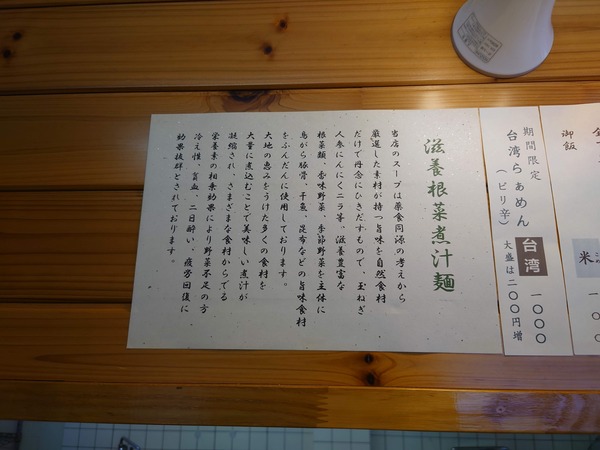 御飯
期間限定
台湾らぁめん
(ピリ辛)
台湾
一〇〇〇
大盛は二〇〇円増
滋養根菜煮汁麺
当店のスープは薬食同源の考えから
厳選した素材が持つ旨味を自然食材
だけで丹念にひきだすもので、玉ねぎ
人参にんにくニラ等、滋養豊富な
根菜類、香味野菜、季節野菜を主体に
鳥がら豚骨、干魚、昆布などの旨味食材
をふんだんに使用しております。
大地の恵みをうけた多くの食材を
大量に煮込むことで美味しい煮汁が
凝縮され、さまざまな食材からでる
栄養素の相乗効果により野菜不足の方
冷え性、貧血、二日酔い、疲労回復に
効果抜群とされております。